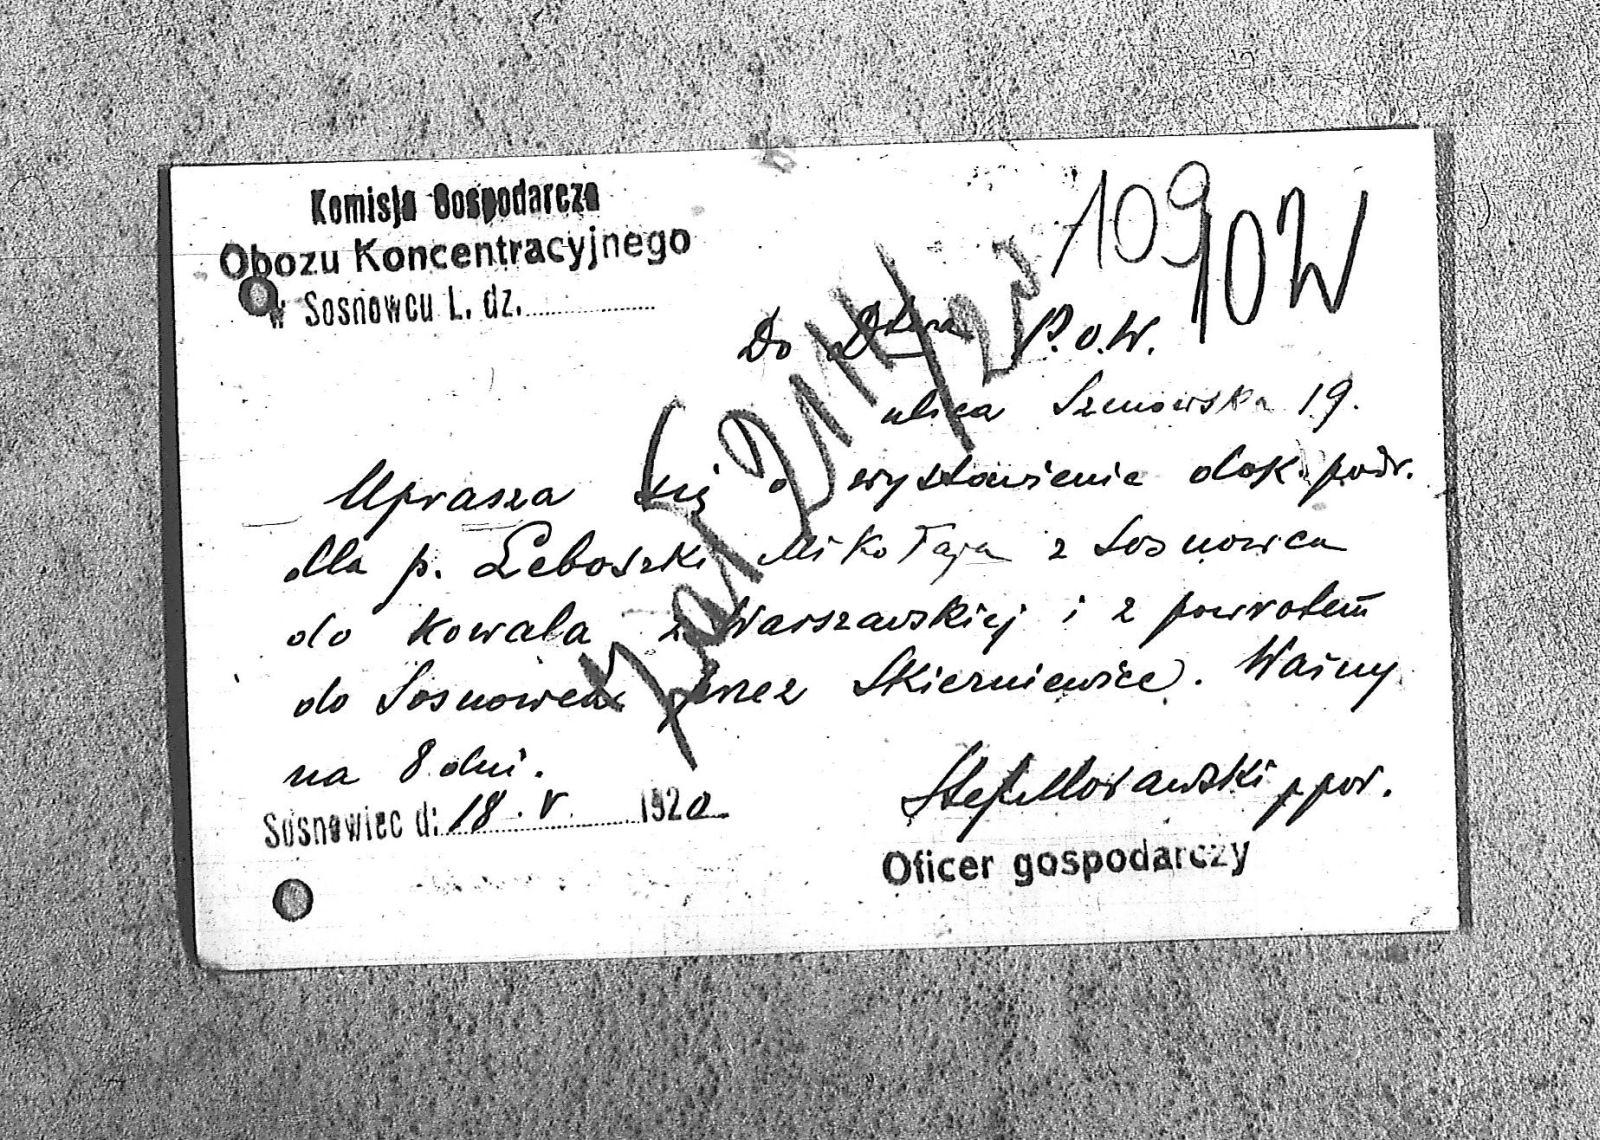 Komisja Gospodarcza
Obozu Koncentracyjnego
w Sosnowcu L. dz.
109
POW
Do P.O.W.
ulica 19.
Uprasza się o wystawienie dok. podr.
dla p. Leboszki Mikołaja z Sosnowca
do Kowala z Warszawskiej i z powrotem
do Sosnowca przez Skierniewice. Ważny
na 8 dni.
Sosnowiec d: 18. V 1920
Stef Morawski ppor.
Oficer gospodarczy